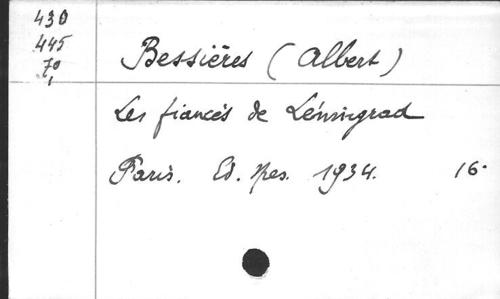 430
445
70
1
Bessières (Albert)
Les fiancés de Léningrad
Paris. Ed. Spes. 1934. 16·